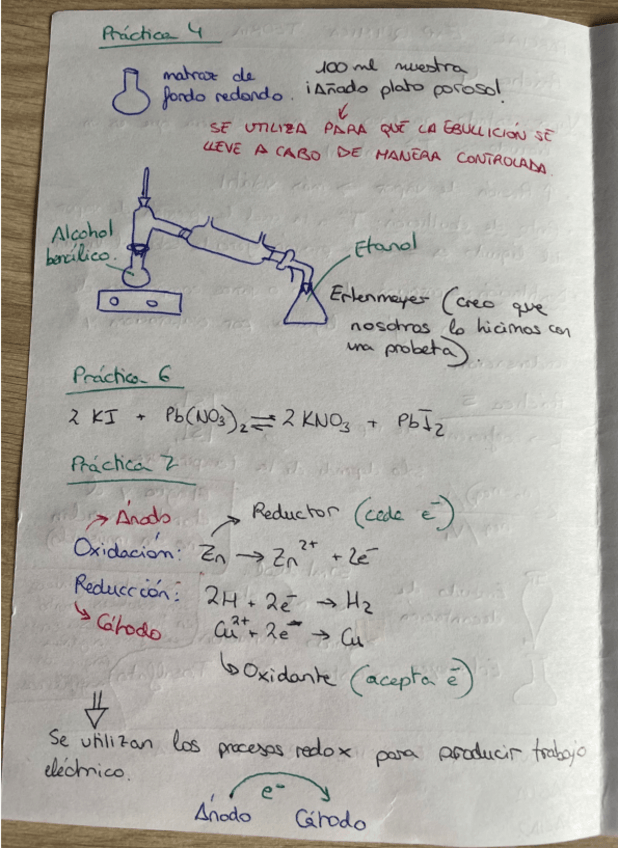 Práctica 4
matraz de
fondo redondo.
100 ml muestra
¡Añado plato poroso!
SE UTILIZA PARA QUE LA EBULLICIÓN SE
LLEVE A CABO DE MANERA CONTROLADA.
Alcohol
bencílico.
Etanol
Erlenmeyer (creo que
nosotros lo hicimos con
una probeta).
Práctica 6
2 KI + Pb(NO₃)₂ ⇌ 2 KNO₃ + PbI₂
Práctica 7
→ Ánodo
Reductor (cede e⁻)
Oxidación: Zn → Zn²⁺ + 2e⁻
Reducción: 2H + 2e⁻ → H₂
Cátodo
Cu²⁺ + 2e⁻ → Cu
Oxidante (acepta e⁻)
⇓
Se utilizan los procesos redox para producir trabajo
eléctrico.
e⁻
Ánodo Cátodo